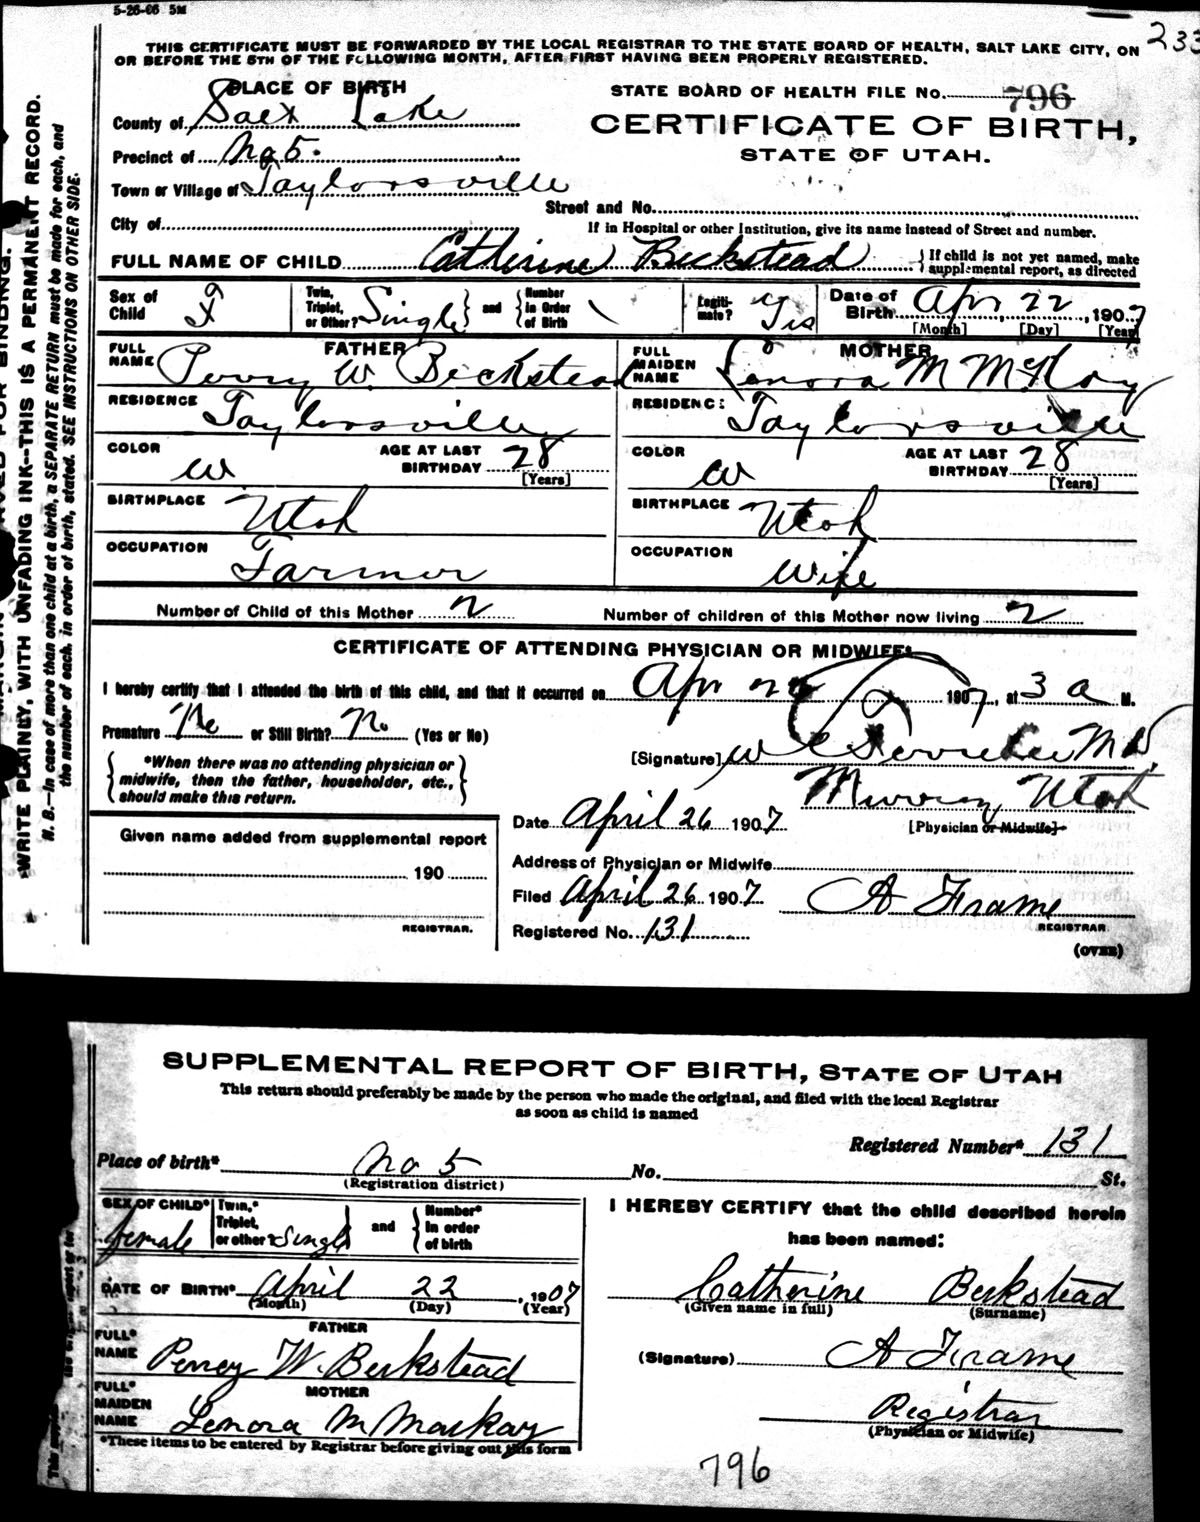 5-26-06 5M
233
THIS CERTIFICATE MUST BE FORWARDED BY THE LOCAL REGISTRAR TO THE STATE BOARD OF HEALTH, SALT LAKE CITY, ON
OR BEFORE THE 5TH OF THE FOLLOWING MONTH, AFTER FIRST HAVING BEEN PROPERLY REGISTERED.
PLACE OF BIRTH
STATE BOARD OF HEALTH FILE No. 796
County of Salt Lake
CERTIFICATE OF BIRTH,
Precinct of No 5.
STATE OF UTAH.
Town or Village of Taylorsville
Street and No.
City of
If in Hospital or other Institution, give its name instead of Street and number.
FULL NAME OF CHILD Catherine Beckstead { If child is not yet named, make supplemental report, as directed
Sex of Child F Twin, Triplet, or Other? Single } and { Number in Order of Birth Legiti-mate? Yes Date of Birth Apr 22, 1907
[Month] [Day] [Year]
FATHER
FULL NAME Perry W. Beckstead
RESIDENCE Taylorsville
COLOR W AGE AT LAST BIRTHDAY 28 [Years]
BIRTHPLACE Utah
OCCUPATION Farmer
MOTHER
FULL MAIDEN NAME Lenora M McKay
RESIDENCE: Taylorsville
COLOR W AGE AT LAST BIRTHDAY 28 [Years]
BIRTHPLACE Utah
OCCUPATION Wife
Number of Child of this Mother 2 Number of children of this Mother now living 2
CERTIFICATE OF ATTENDING PHYSICIAN OR MIDWIFE*
I hereby certify that I attended the birth of this child, and that it occurred on Apr 22 1907, at 3 a M.
Premature No or Still Birth? No (Yes or No)
[Signature] M D.
{ *When there was no attending physician or midwife, then the father, householder, etc., should make this return. }
Murray Utah
Date April 26 1907 [Physician or Midwife]
Given name added from supplemental report
190
REGISTRAR.
Address of Physician or Midwife
Filed April 26 1907 A Frame
REGISTRAR
Registered No. 131
(OVER)
WRITE PLAINLY, WITH UNFADING INK--THIS IS A PERMANENT RECORD.
N. B.—In case of more than one child at a birth, a SEPARATE RETURN must be made for each, and
the number of each, in order of birth, stated. SEE INSTRUCTIONS ON OTHER SIDE.
SUPPLEMENTAL REPORT OF BIRTH, STATE OF UTAH
This return should preferably be made by the person who made the original, and filed with the local Registrar
as soon as child is named
Registered Number* 131
Place of birth* No 5 No. St.
(Registration district)
SEX OF CHILD* female Twin,* Triplet, or other Single } and { Number* in order of birth
DATE OF BIRTH* April 22, 1907
(Month) (Day) (Year)
FATHER
FULL* NAME Perrey W. Beckstead
MOTHER
FULL* MAIDEN NAME Lenora M Mackay
*These items to be entered by Registrar before giving out this form
I HEREBY CERTIFY that the child described herein
has been named:
Catherine Beckstead
(Given name in full) (Surname)
(Signature) A Frame
Registrar
(Physician or Midwife)
796